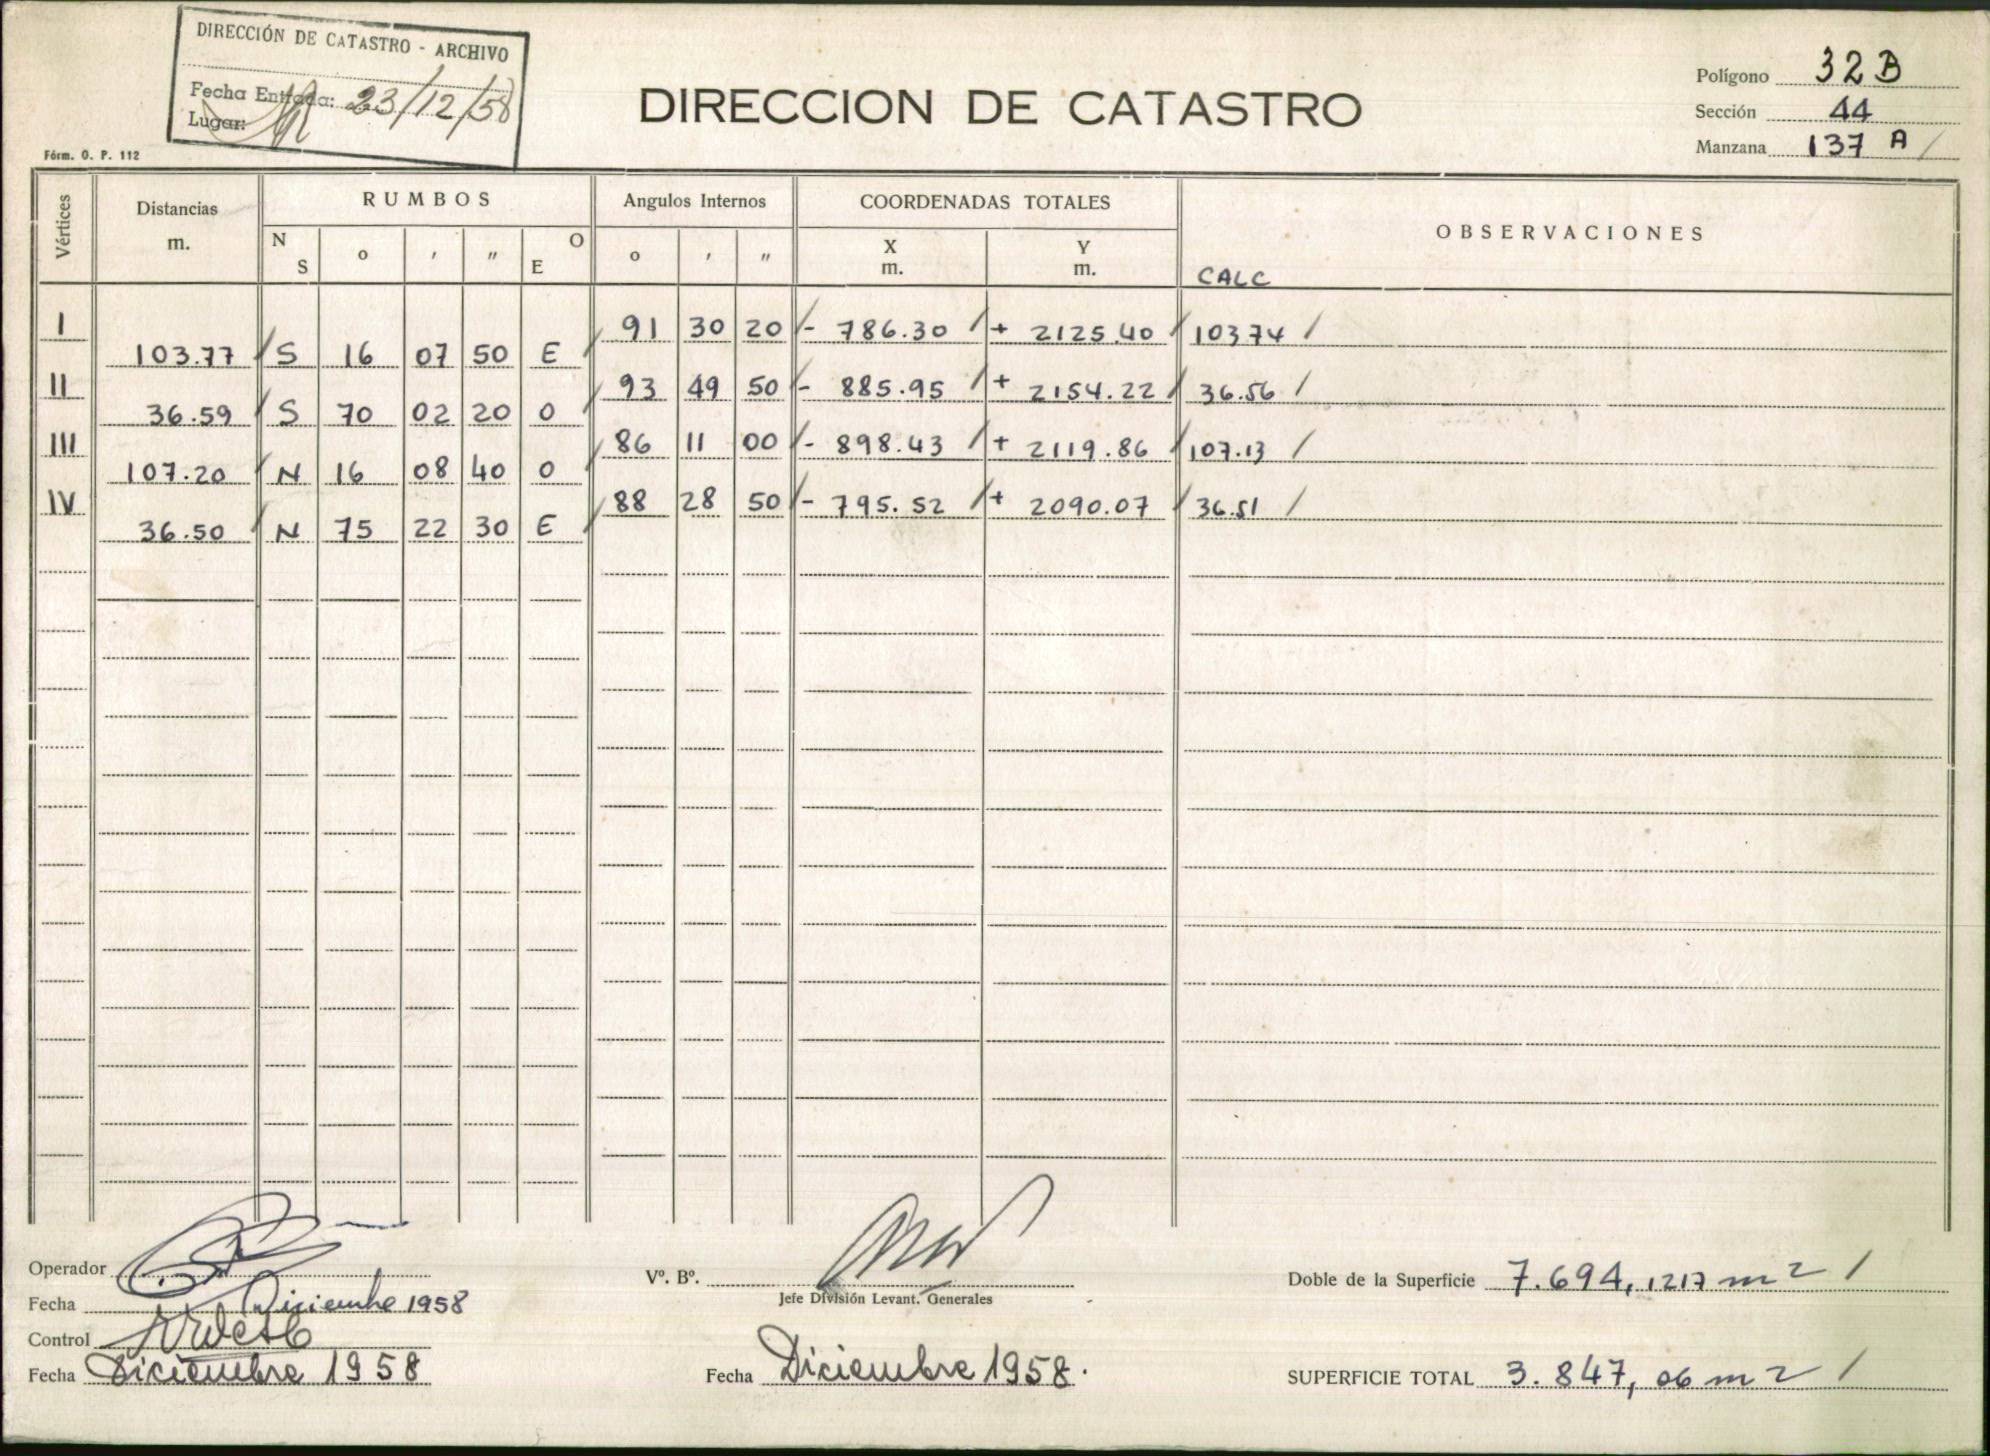 DIRECCIÓN DE CATASTRO - ARCHIVO
Fecha Entrada: 23/12/58
Lugar:
Fórm. O. P. 112
DIRECCION DE CATASTRO
Polígono 32 B
Sección 44
Manzana 137 A /
Vértices Distancias m. RUMBOS Angulos Internos COORDENADAS TOTALES OBSERVACIONES
N S o ' " O E o ' " X m. Y m. CALC
I 91 30 20 - 786.30 + 2125.40 103.74 /
103.77 S 16 07 50 E
II 93 49 50 - 885.95 + 2154.22 36.56 /
36.59 S 70 02 20 O
III 86 11 00 - 898.43 + 2119.86 107.13 /
107.20 N 16 08 40 O
IV 88 28 50 - 795.52 + 2090.07 36.51 /
36.50 N 75 22 30 E
Operador
Fecha Diciembre 1958
Control
Fecha Diciembre 1958
Vº. Bº.
Jefe División Levant. Generales
Fecha Diciembre 1958.
Doble de la Superficie 7.694,1217 m2 /
SUPERFICIE TOTAL 3.847,06 m2 /